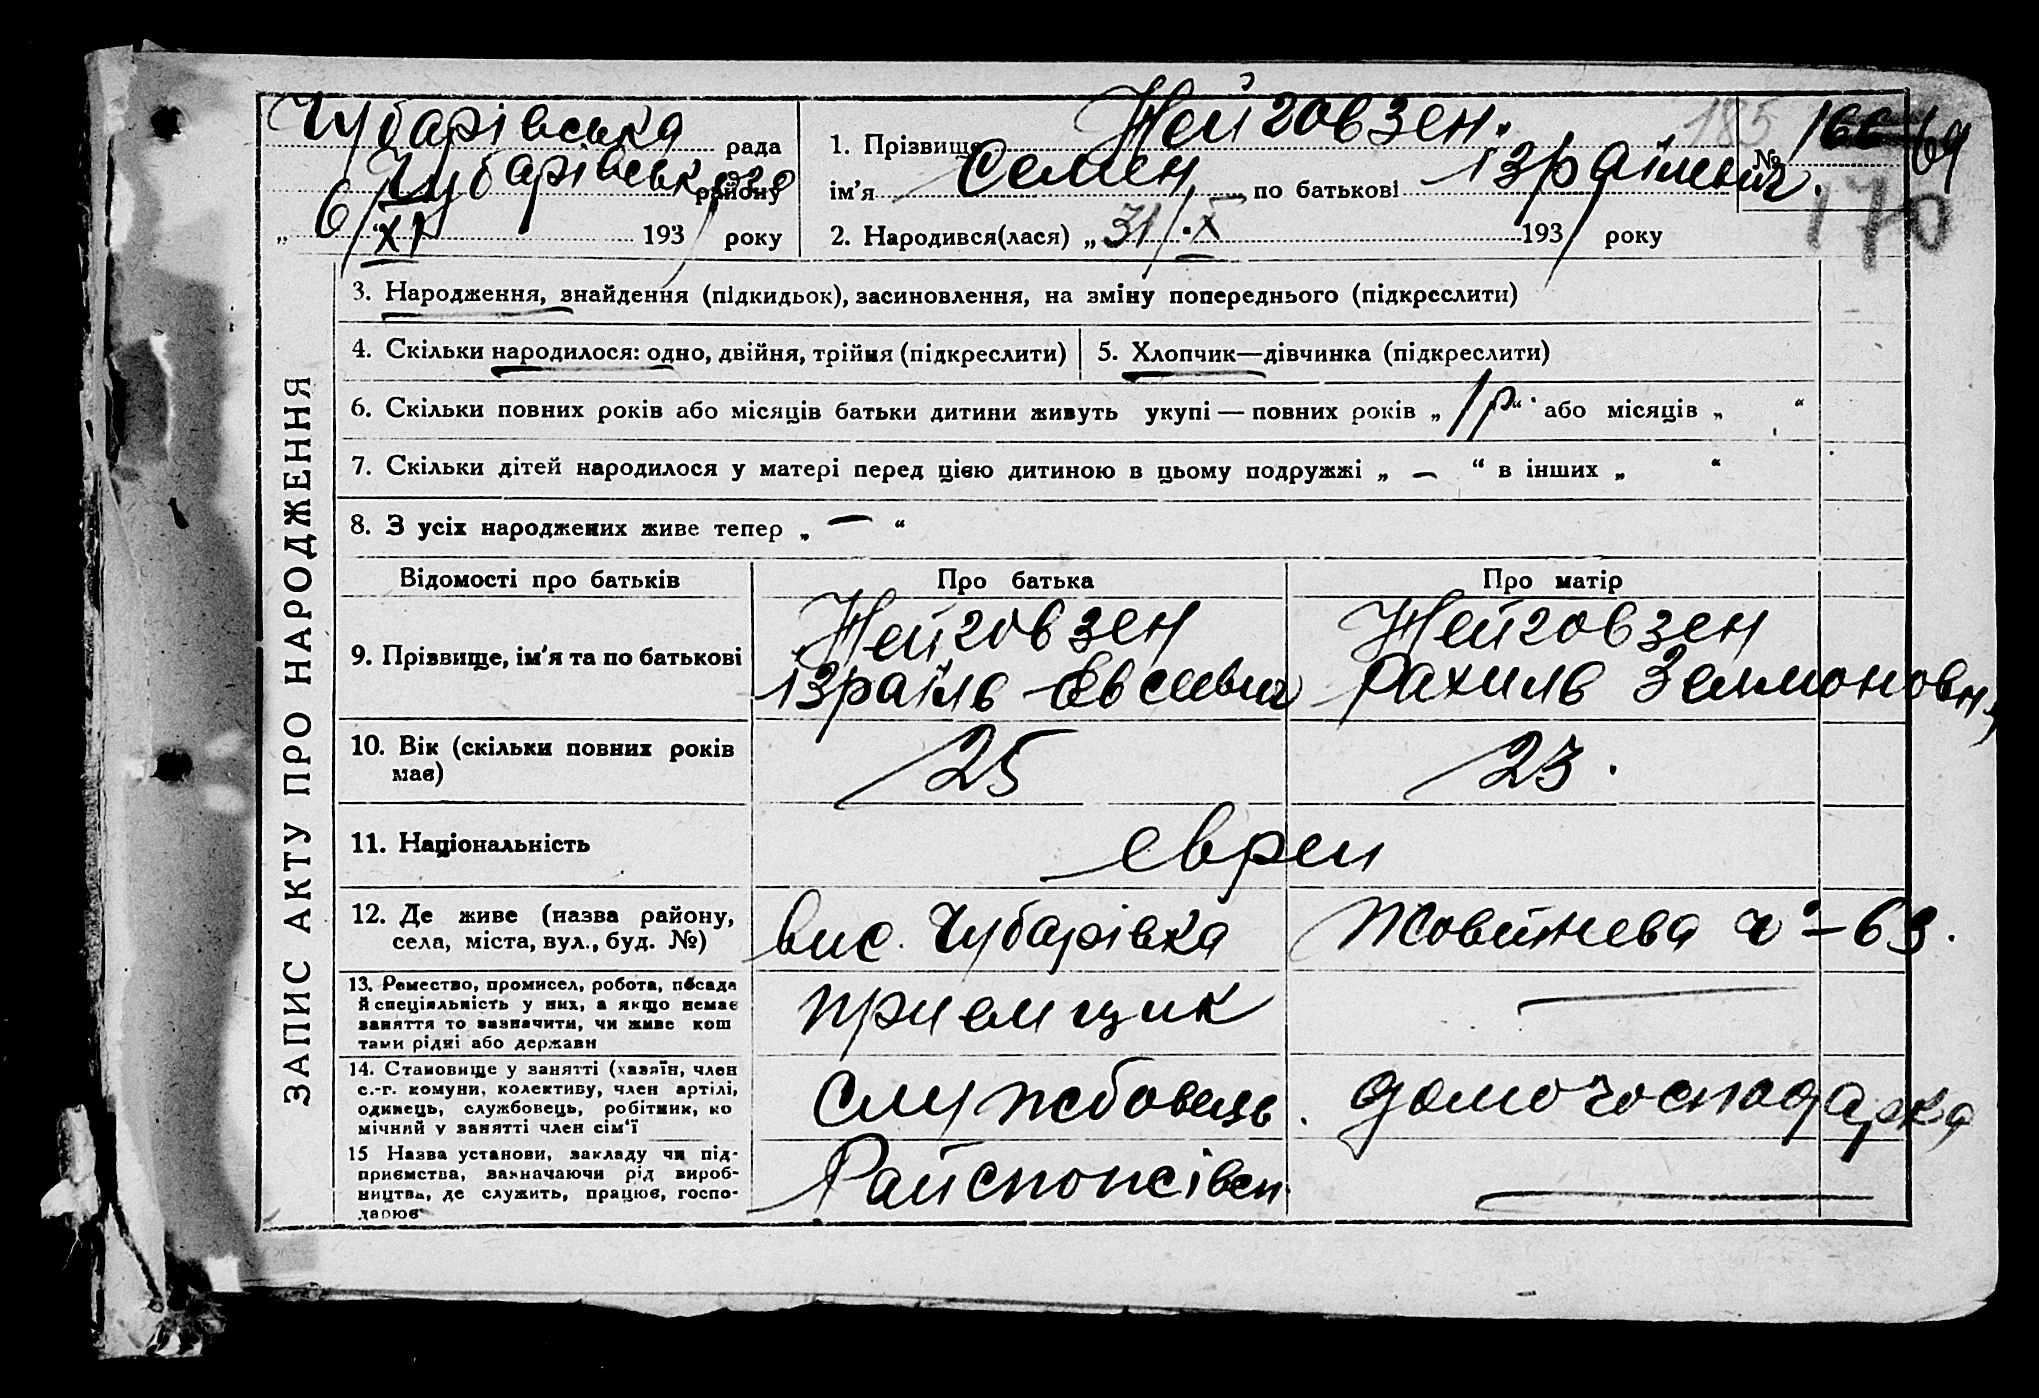 Чубарівська рада
Чубарівського району
„ 6/XI 1931 року
1. Прізвище Нейговзен. 185 № 166 169
ім'я Семен по батькові Ізраїлевич. 170
2. Народився(лася) „ 31/X 1931 року
ЗАПИС АКТУ ПРО НАРОДЖЕННЯ
3. Народження, знайдення (підкидьок), засиновлення, на зміну попереднього (підкреслити)
4. Скільки народилося: одно, двійня, трійня (підкреслити) 5. Хлопчик—дівчинка (підкреслити)
6. Скільки повних років або місяців батьки дитини живуть укупі — повних років „ 1 р. “ або місяців „ “
7. Скільки дітей народилося у матері перед цією дитиною в цьому подружжі „ — “ в інших „ “
8. З усіх народжених живе тепер „ — “
Відомості про батьків Про батька Про матір
9. Прізвище, ім'я та по батькові
Нейговзен Нейговзен
Ізраїль Евсеевич Рахиль Зелмоновна
10. Вік (скільки повних років
має)
25 23.
11. Національність евреи
12. Де живе (назва району,
села, міста, вул., буд. №)
вис. Чубарівка Жовтнева ч° – 63.
13. Ремество, промисел, робота, посада
й спеціяльність у них, а якщо немає
заняття то зазначити, чи живе кош
тами рідні або держави
приемщик —
14. Становище у занятті (хазяїн, член
с.-г. комуни, колективу, член артілі,
одинець, службовець, робітник, по
мічний у занятті член сім'ї
службовець. домогосподарка
15 Назва установи, закладу чи під-
приємства, зазначаючи рід вироб-
ництва, де служить, працює, госпо-
дарює
—